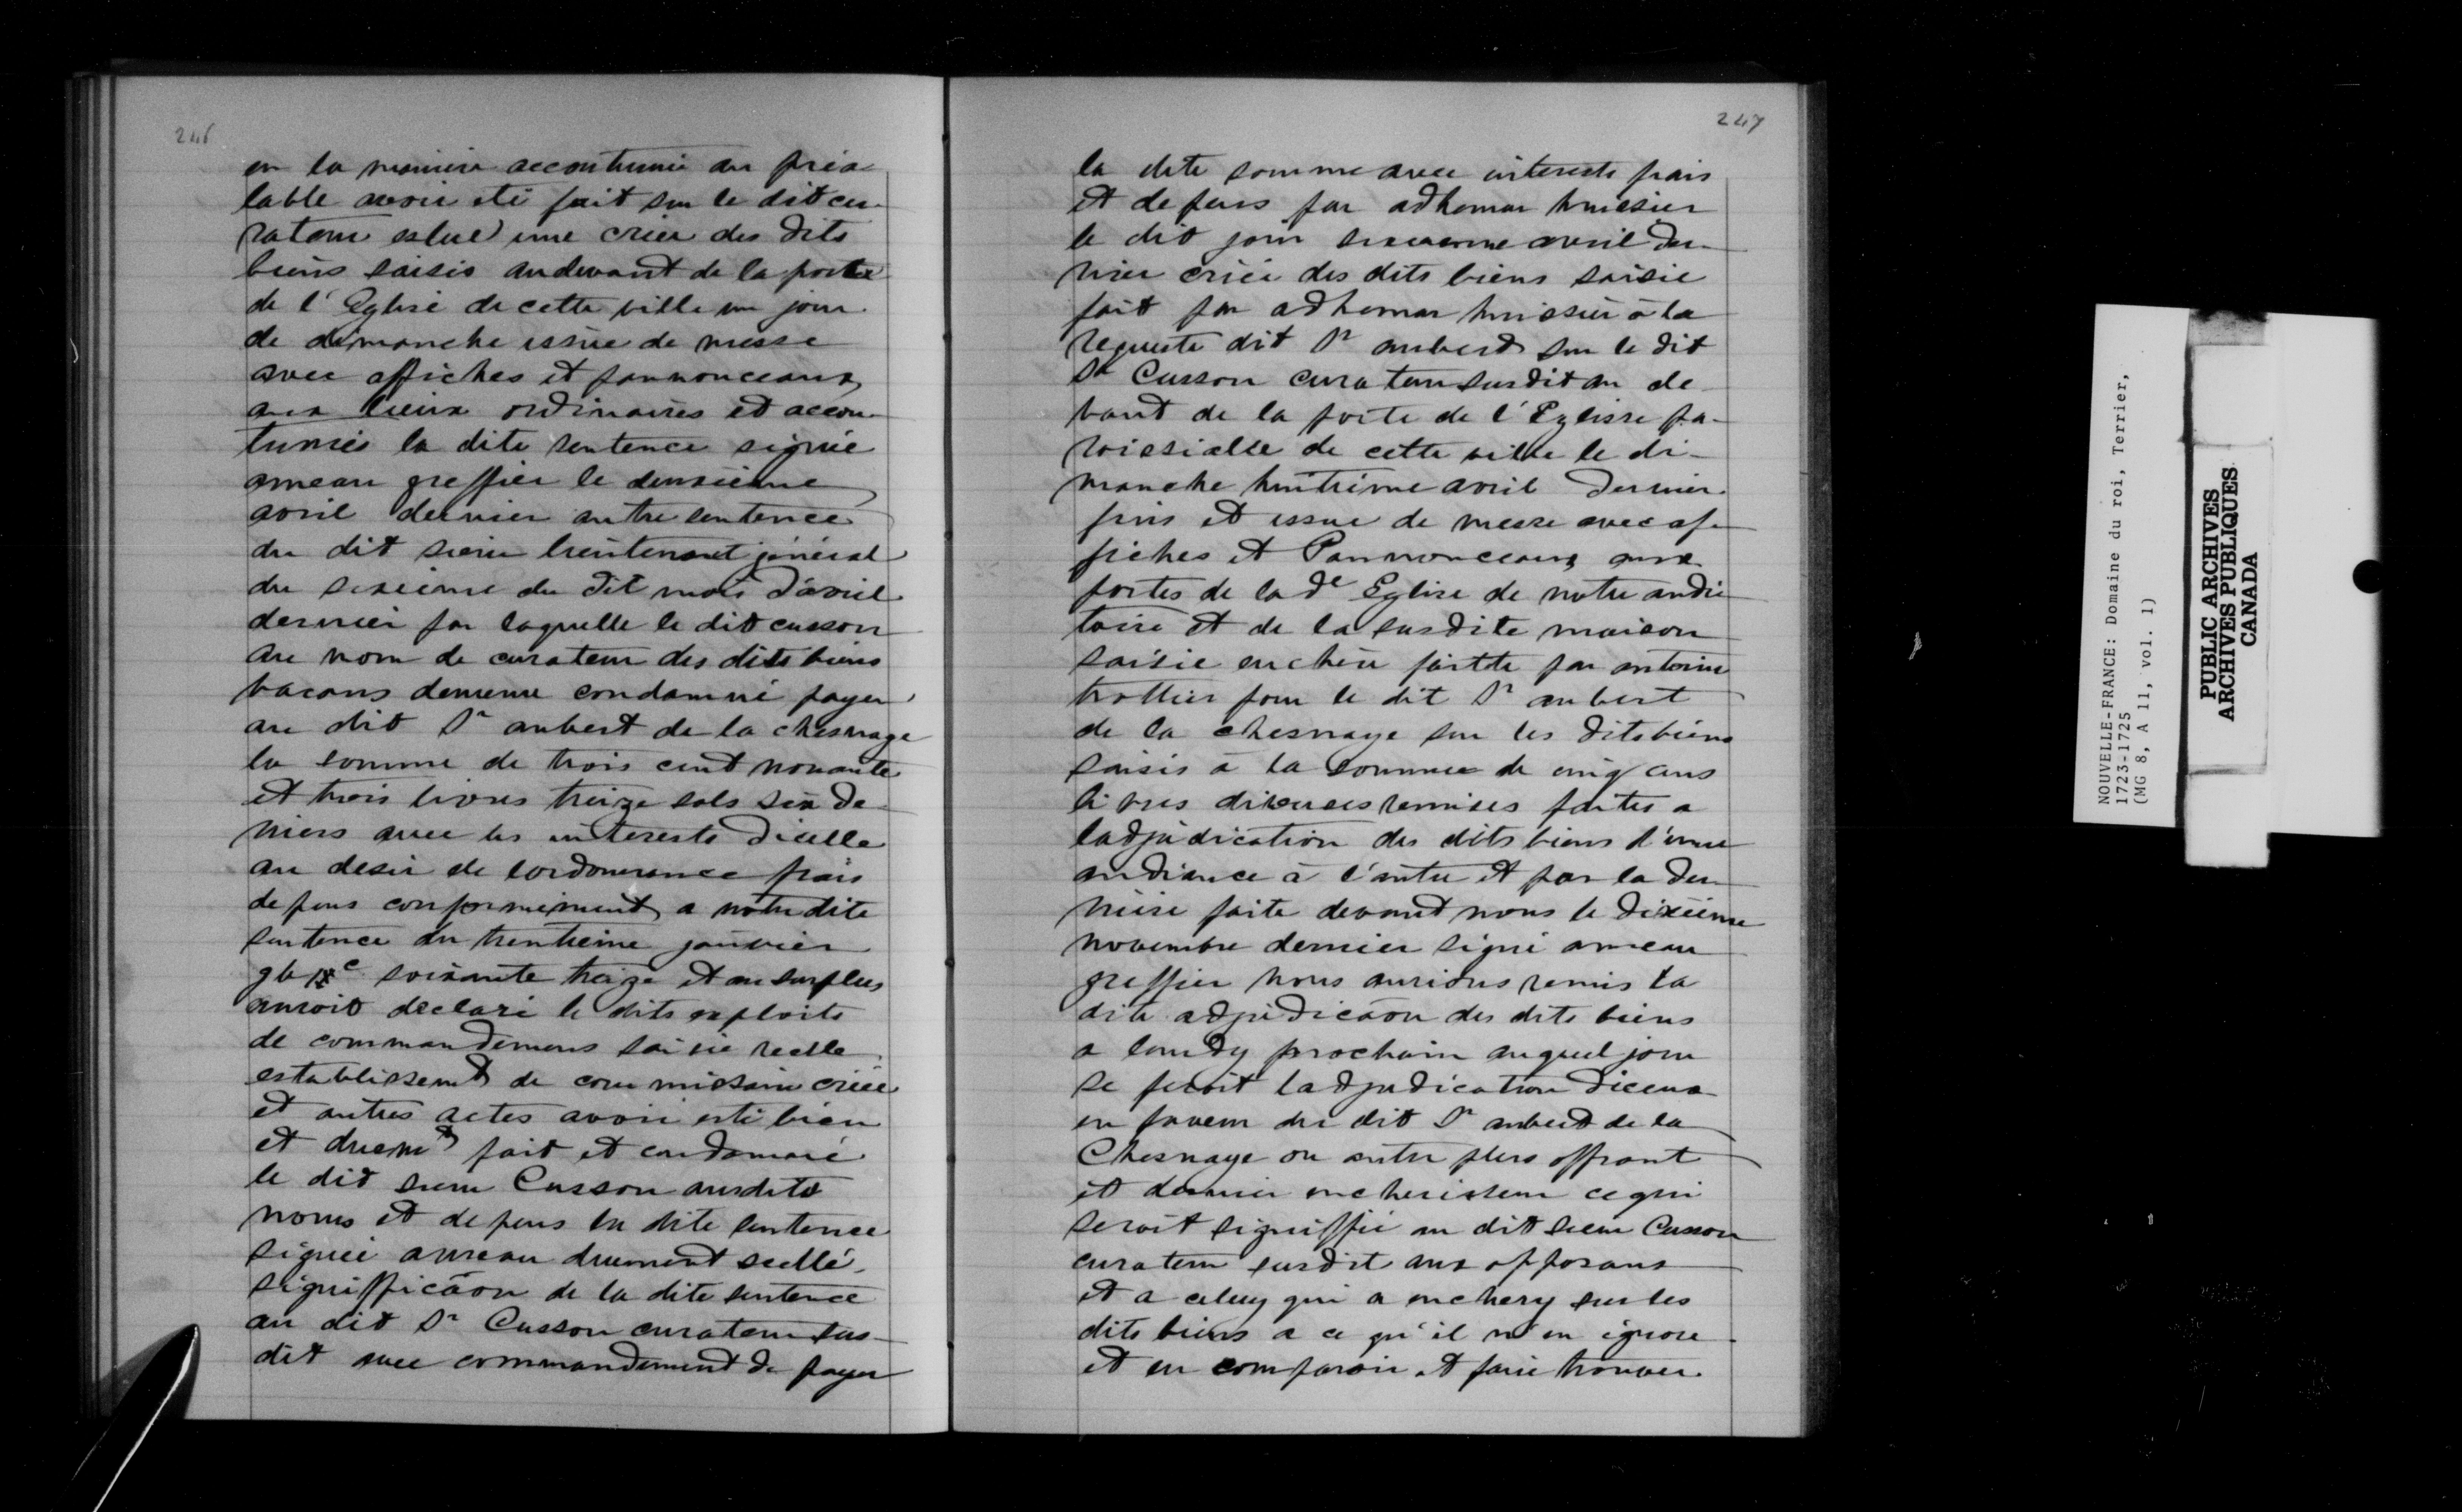 246
en la maniere accoutumée au préa-
lable avoir eté fait sur le dit cu-
rateur eslue une criée des dits
biens saisis audevant de la porte
de l'Eglise de cette ville un jour
de dimanche issüe de messe
avec affiches et pannonceaux
aux lieux ordinaires et accou-
tumés la dite sentence signée
ameau greffier le deuxième
avril dernier autre sentence
du dit sieur lieutenant général
du sixième du dit mois d'avril
dernier par laquelle le dit cusson
au nom de curateur des dits biens
vacans demeure condamné payer
au dit Sr aubert de la chesnaye
la somme de trois cent nonante
et trois livres treize sols six de-
niers avec les interests d'icelle
au desir de lordonnance frais
depens conformément a notre dite
sentence du trentieme janvier
soixante treize et au surplus
auroit declaré le dits exploits
de commandemens saisie reelle
establissemt de commissaire criée
et autres actes avoir esté bien
et duemt fait et condamné
le dit sieur Cusson ausdits
noms et depens la dite sentence
signée ameau duement scellé,
signifficãon de la dite sentence
au dit Sr Cusson curateur sus-
dit avec commandement de payer
247
la dite somme avec interests frais
et depens par adhemar huissier
le dit jour sixieme avril der-
nier criée des dits biens saisie
fait par adhemar huissier à la
requeste dit Sr aubert sur le dit
Sr Cusson curateur susdit au de-
vant de la porte de l'Eglisse pa-
roissialle de cette ville le di-
manche huitrième avril dernier
fins et issue de messe avec af-
fiches et Pannonceaux aux
portes de la de Eglise de notre audi-
toire et de la susdite maison
saisie enchere faitte par antoine
trottier pour le dit Sr aubert
de la chesnaye sur les dits biens
saisis à la somme de cinq cens
livres diverses remises faites a
ladjudication des dits biens d'une
audiance à l'autre et par la der-
nière faite devant nous le dixième
novembre dernier signé ameau
greffier nous aurions remis la
dite adjudicãon des dits biens
a lundy prochain auquel jour
se feroit ladjudication diceux
en faveur du dit Sr aubert de la
Chesnaye ou autre plus offrant
et dernier encherisseur ce qui
seroit signiffié au dit sieur Cusson
curateur susdit aux opposans
et a celuy qui a enchery sur les
dits biens a ce qu'il n'en ignore
et en comparoir et faire trouver
NOUVELLE-FRANCE: Domaine du roi, Terrier,
1723-1725
(MG 8, A 11, vol. 1)
PUBLIC ARCHIVES
ARCHIVES PUBLIQUES
CANADA